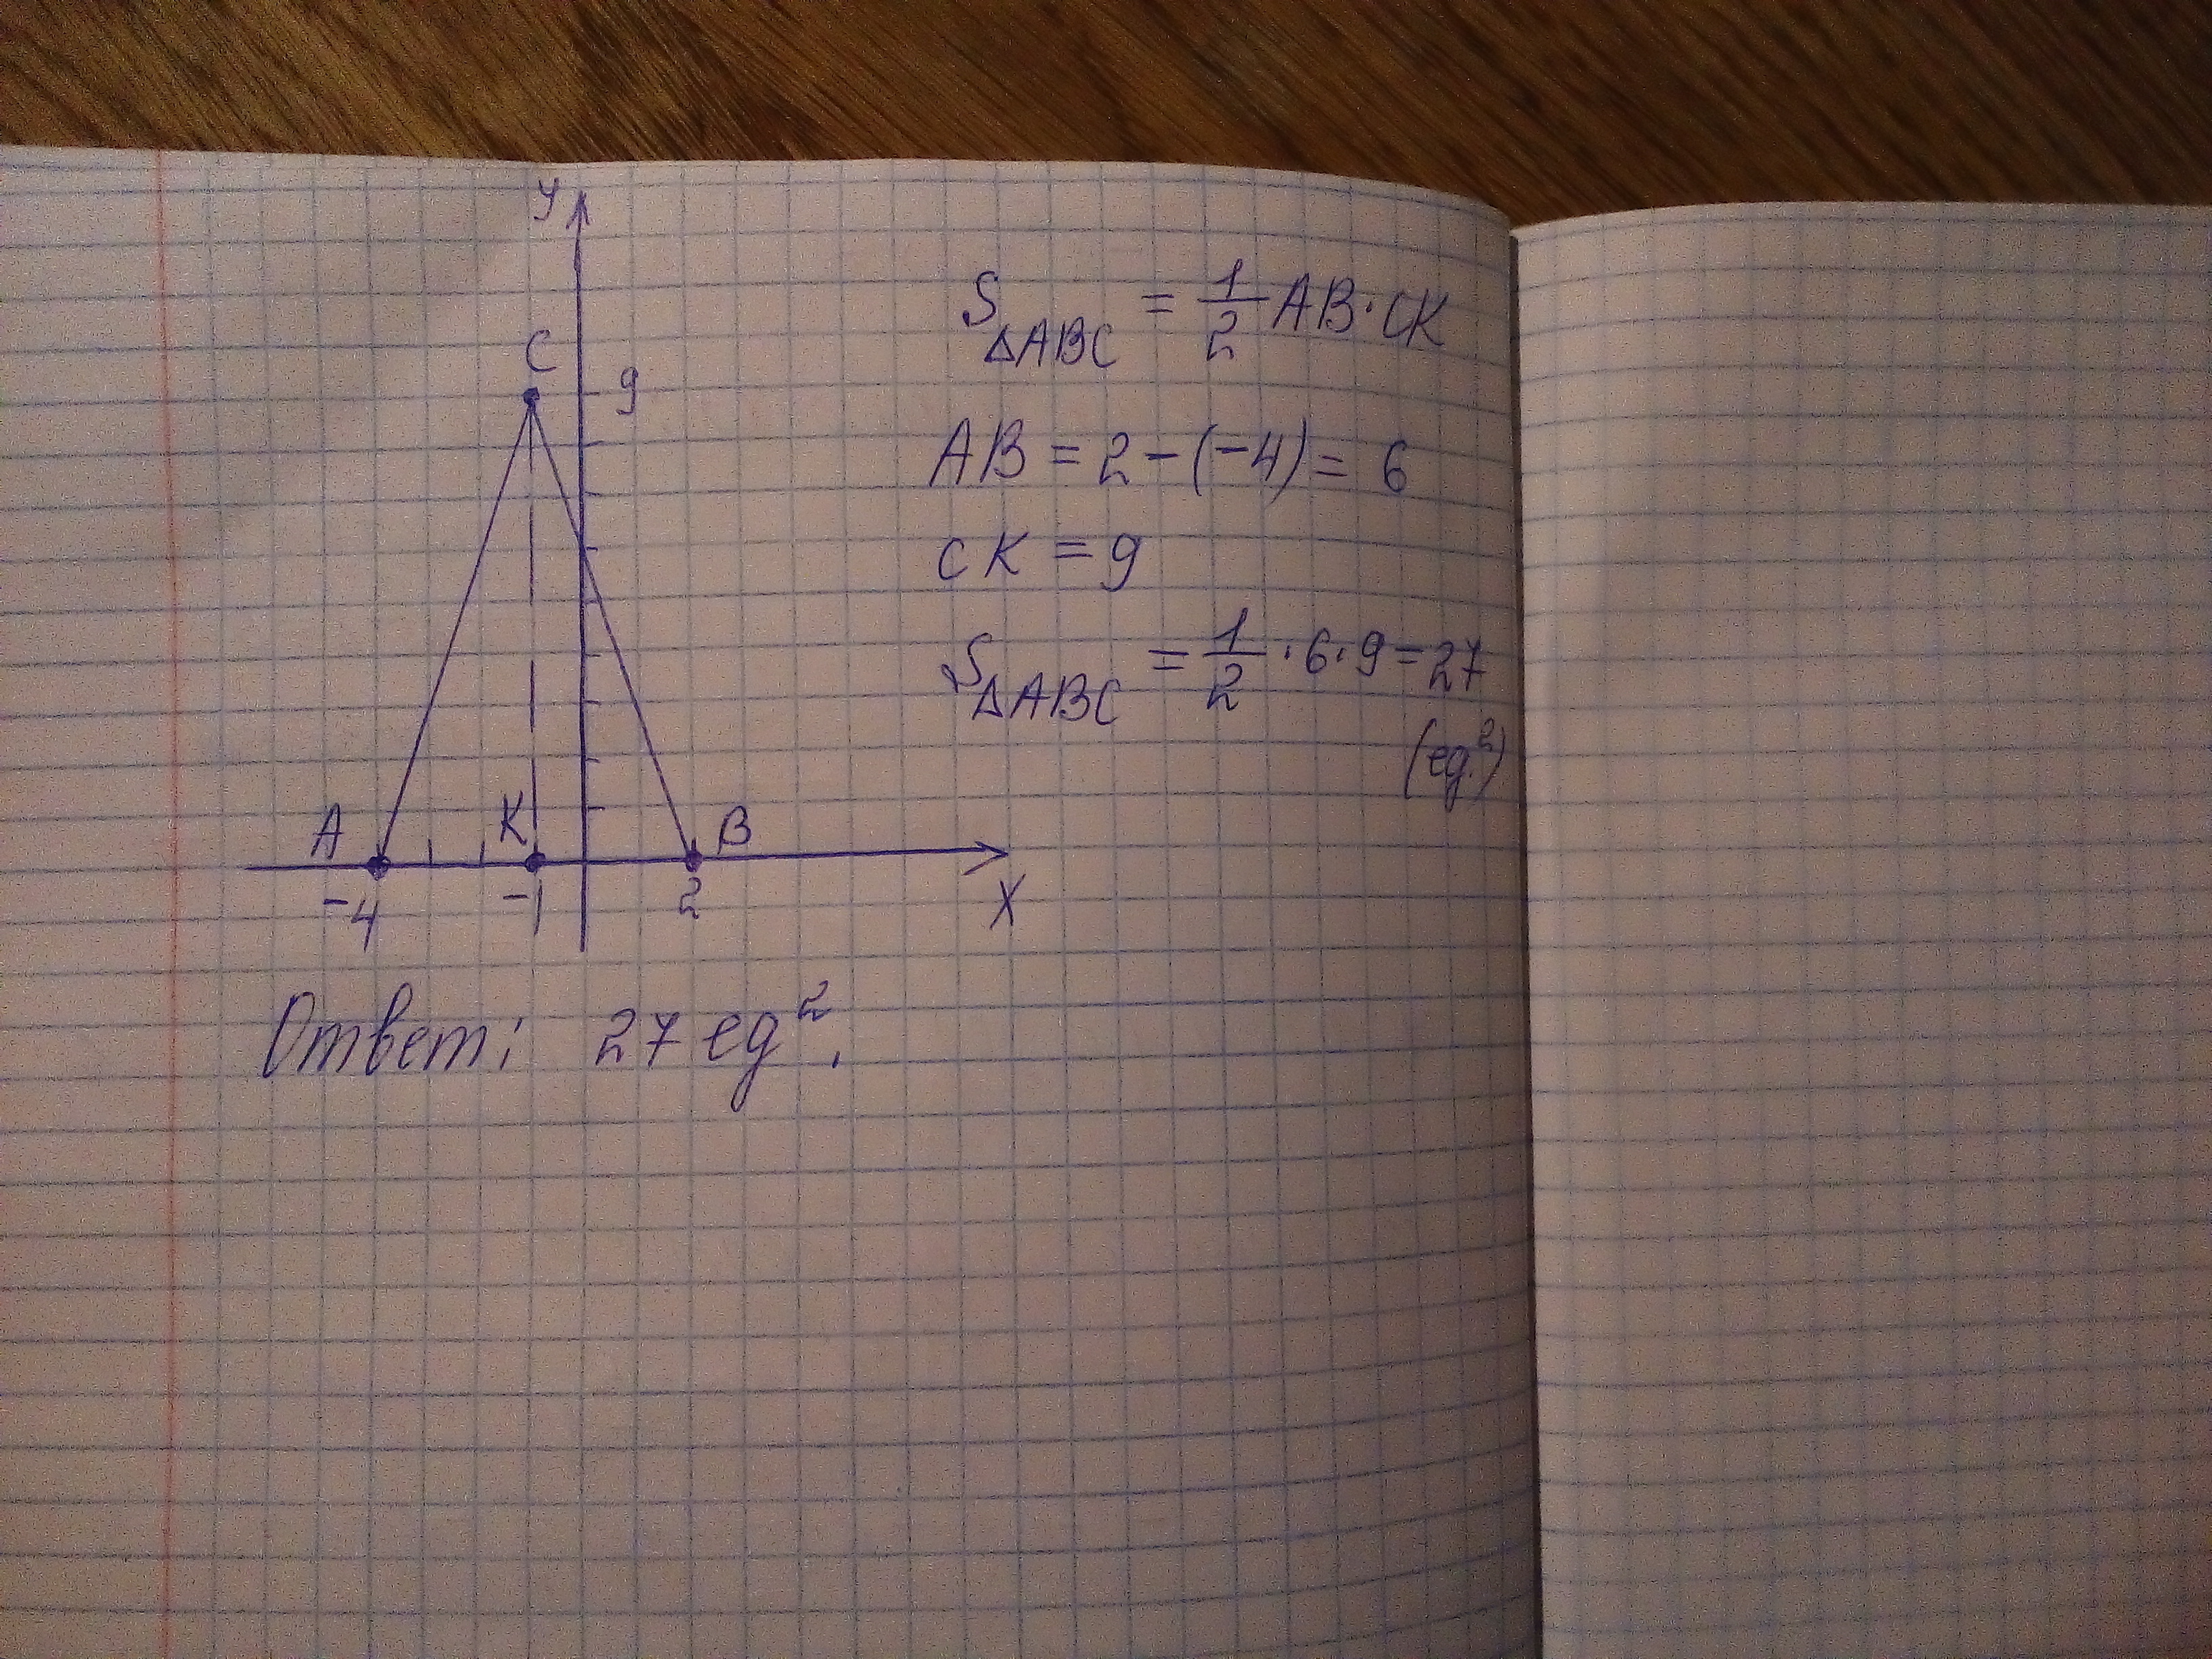 y
C
9
A
K
B
-4
-1
2
X
S△ABC = 1/2 AB · CK
AB = 2 - (-4) = 6
CK = 9
S△ABC = 1/2 · 6 · 9 = 27
(ед.²)
Ответ: 27 ед².